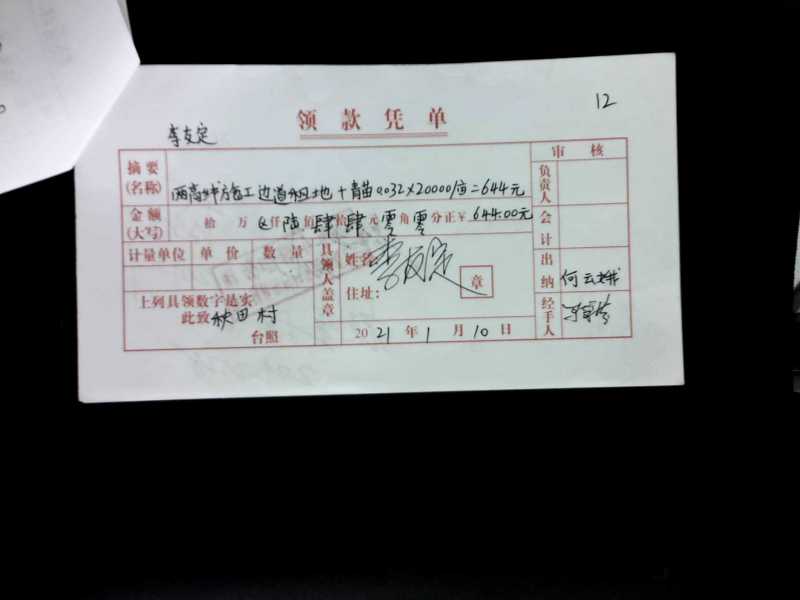 12
领款凭单
李友定
审核
摘要
(名称)
两高 施工边道租地+青苗0.032×20000/亩=644元
负责人
金额
(大写)
拾万 仟陆佰肆拾肆元零角零分正¥644.00元
会计
计量单位 单价 数量
具领人盖章
姓名:李友定
住址:
章
出纳
何云娥
上列具领数字是实
此致 秋田村
台照
2021年1月10日
经手人